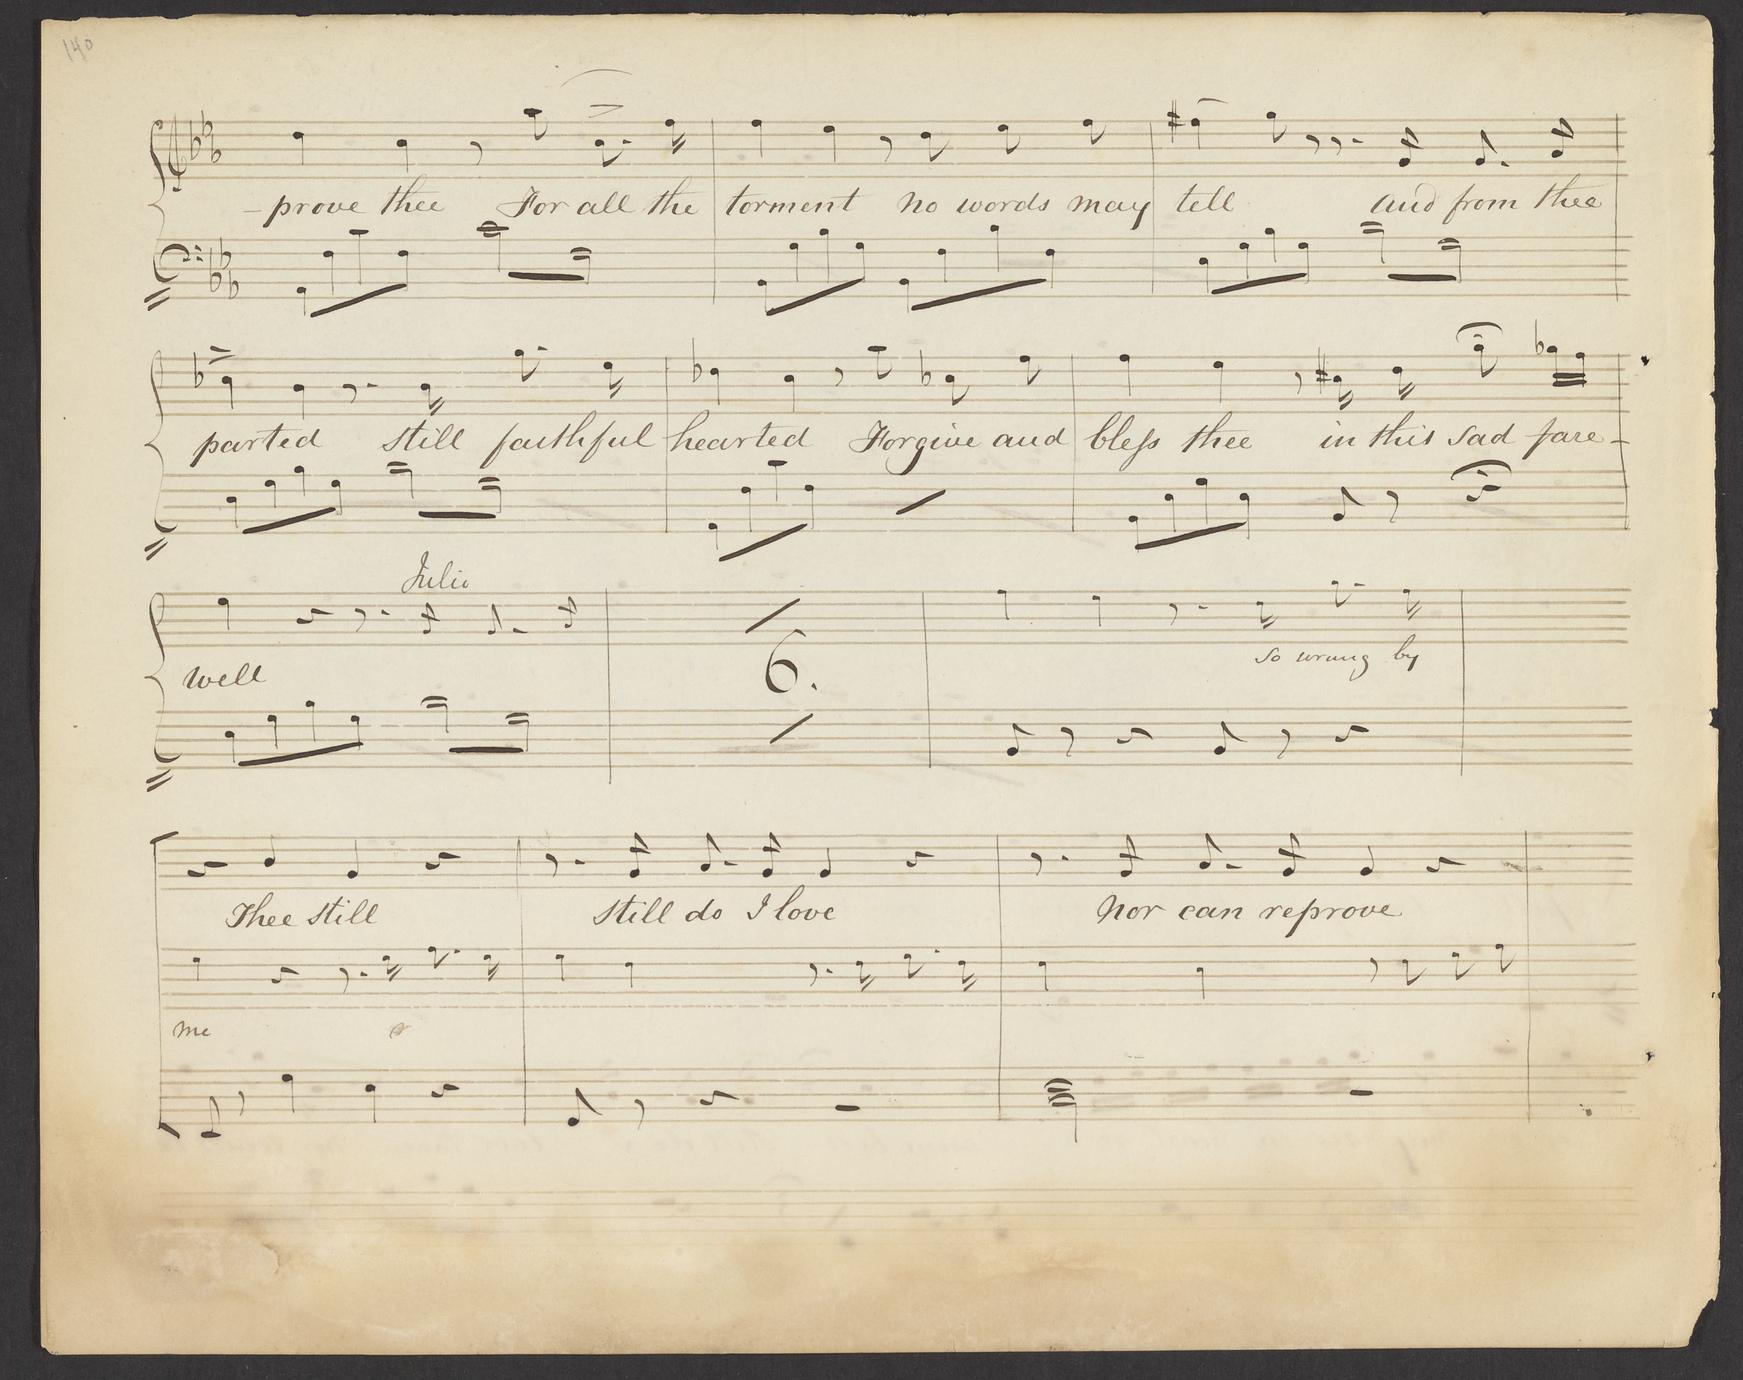 140
- prove thee For all the torment no words may tell and from thee
parted still faithful hearted Forgive and bless thee in this sad fare -
Julio
well
6.
so wrung by
Thee still still do I love Nor can reprove
me